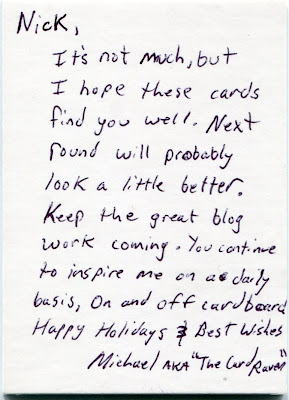 Nick,
It's not much, but
I hope these cards
find you well. Next
round will probably
look a little better.
Keep the great blog
work coming. You continue
to inspire me on a daily
basis, On and off cardboard
Happy Holidays & Best Wishes
Michael AKA "The Card Raven"